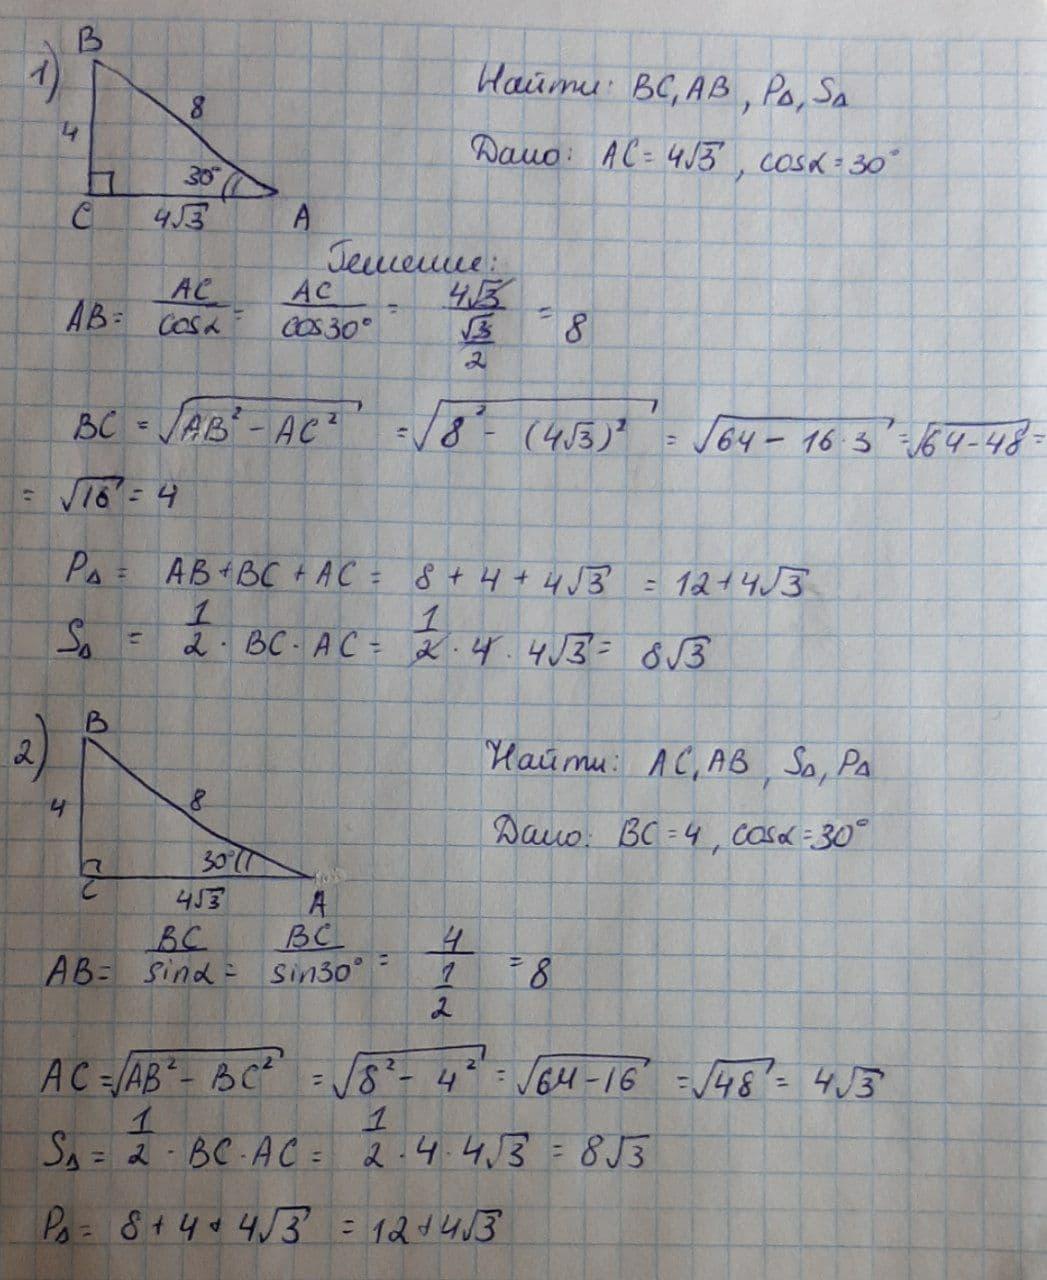 1)
B
8
4
30°
C
4√3
A
Найти: BC, AB, P△, S△
Дано: AC = 4√3, cosα = 30°
Решение:
AB = AC/cosα = AC/cos30° = 4√3/(√3/2) = 8
BC = √(AB² - AC²) = √(8² - (4√3)²) = √(64 - 16·3) = √(64-48) =
= √16 = 4
P△ = AB + BC + AC = 8 + 4 + 4√3 = 12 + 4√3
S△ = 1/2 · BC · AC = 1/2 · 4 · 4√3 = 8√3
2)
B
8
4
30°
C
4√3
A
Найти: AC, AB, S△, P△
Дано: BC = 4, cosα = 30°
AB = BC/sinα = BC/sin30° = 4/(1/2) = 8
AC = √(AB² - BC²) = √(8² - 4²) = √(64 - 16) = √48 = 4√3
S△ = 1/2 · BC · AC = 1/2 · 4 · 4√3 = 8√3
P△ = 8 + 4 + 4√3 = 12 + 4√3